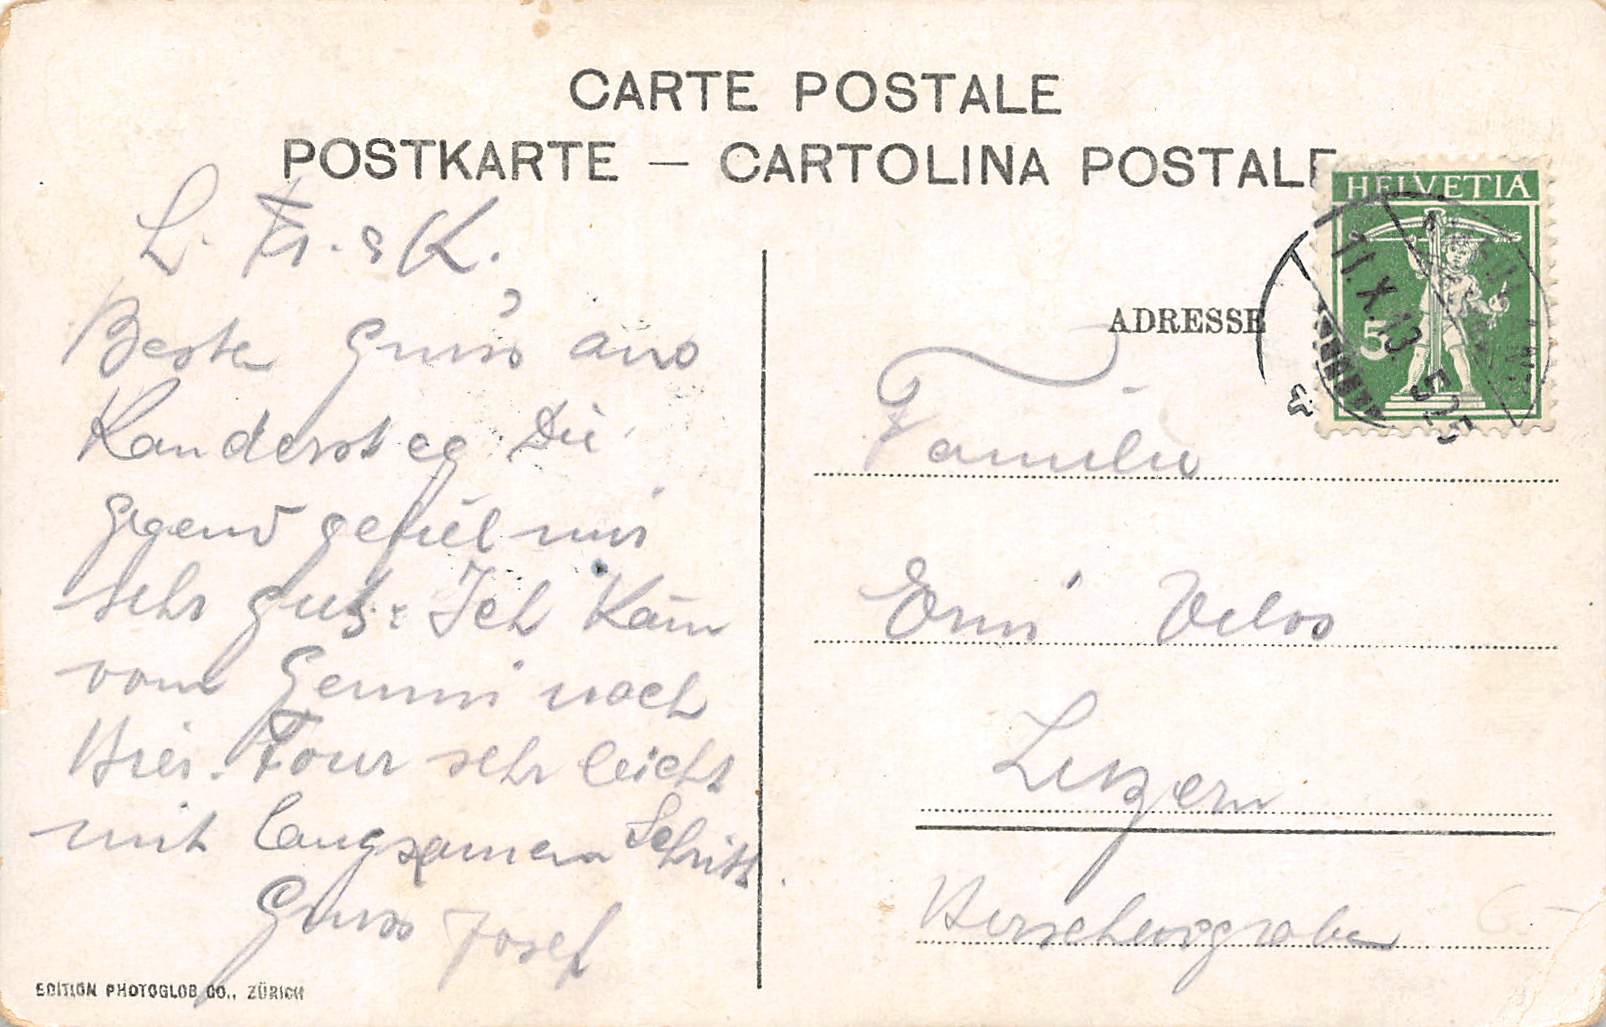 CARTE POSTALE
POSTKARTE — CARTOLINA POSTALE
HELVETIA
5
11.X.13
L. Fr. & K.
Beste Gruss aus
Kandersteg Die
Gegend gefiel mir
sehr gut. Ich kam
vom Gemmi nach
Hier. Tour sehr leicht
mit langsamem Schritt
Gruss Josef
EDITION PHOTOGLOB CO., ZÜRICH
ADRESSE
Familie
Erni
Luzern